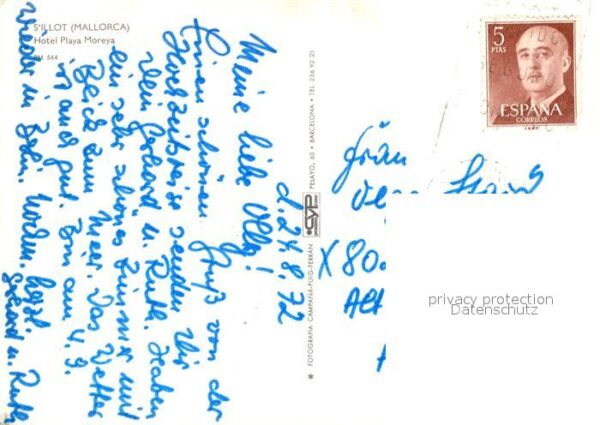 S'ILLOT (MALLORCA)
Hotel Playa Moreya
564
d. 24.8.72
Meine liebe Olly!
Einen schönen Gruß von der
Hochzeitsreise senden Dir
Dein Gerhard u. Ruth. Haben
ein sehr schönes Zimmer mit
Blick zum Meer. Das Wetter
ist auch gut. Bin am 4.9.
wieder in Bln. herzl.
Gerhard u. Ruth
FOTOGRAFIA CAMPAÑA-PUIG-FERRAN
CYP
PELAYO, 60 • BARCELONA • TEL. 236 92 21
5
PTAS
ESPAÑA
CORREOS
Frau
X 80
Alt
privacy protection
Datenschutz